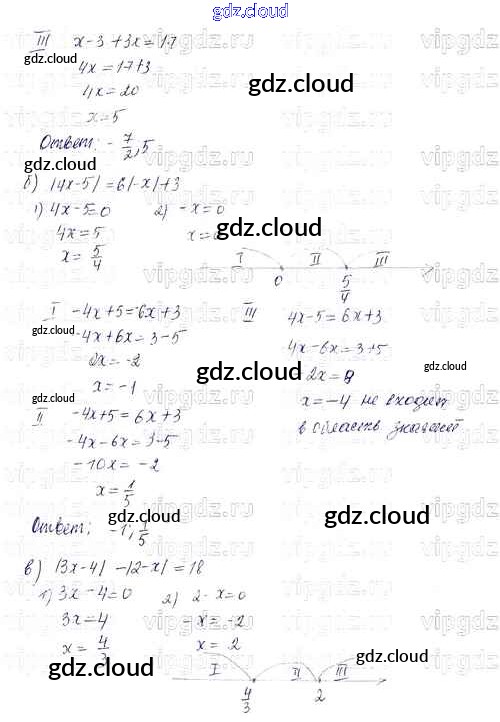 gdz.cloud
III x-3+3x=17
gdz.cloud
4x=17+3
4x=20
gdz.cloud
x=5
Ответ: -7/2, 5
gdz.cloud
б) |4x-5|=6|-x|+3
1) 4x-5=0 2) -x=0
4x=5 x=0
gdz.cloud
x=5/4
gdz.cloud
I II III
0 5/4
I -4x+5=-6x+3 III 4x-5=6x+3
gdz.cloud
-4x+6x=3-5 4x-6x=3+5
2x=-2 -2x=8
gdz.cloud
gdz.cloud
x=-1 x=-4 не входит
в область значений
II -4x+5=6x+3
-4x-6x=3-5
-10x=-2
x=1/5
gdz.cloud
gdz.cloud
Ответ: -1; 1/5
в) |3x-4|-|2-x|=18
1) 3x-4=0 2) 2-x=0
3x=4 -x=-2
x=4/3 x=2
gdz.cloud
gdz.cloud
I II III
4/3 2
vipgdz.ru